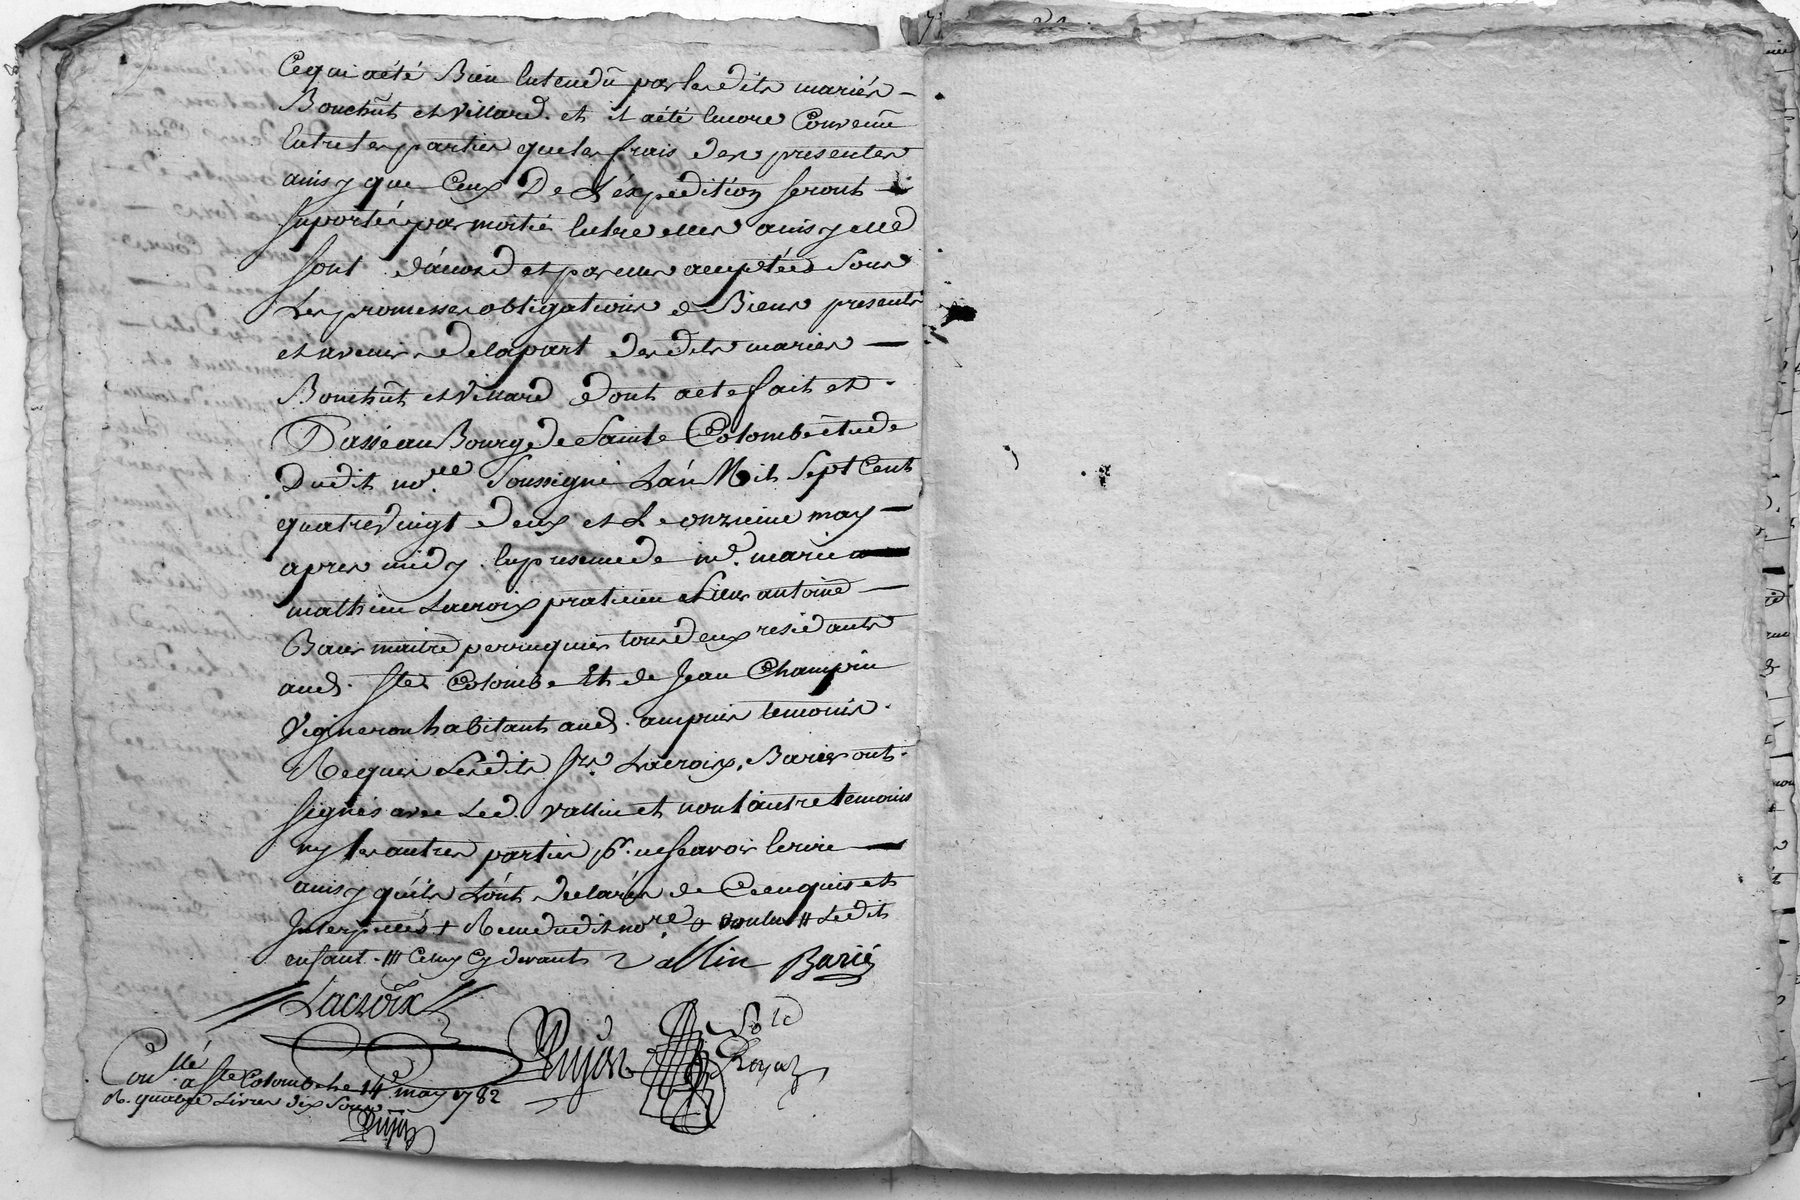 Cequi aété Bien Entendu par lesdits mariés
Bouchut et Villard. et il aété Encore Convenu
Entre les parties queles frais des presentes
ainsy que Ceux De L'éxpedition seront
suportés par moitié Entre elles ainsy elles
sont d'áccord et par elles acceptées sous
Les promesses obligations de Biens presents
et avenir delapart desdits mariés
Bouchut et Villard dont acte fait et
Passé au Bourg de Sainte Colombe étude
Dudit no.re soussigné L'án Mil Sept Cent
quatre vingt deux et Le onzieme may
apres midy. En presence de m.e marie
mathieu Lacroix praticien et sieur antoine
Barier maitre perruquier tous deux residants
aud. ste Colombe Et de Jean Champin
Vigneron habitant aud. ampuis temoins.
Requis Lesdits srs Lacroix, Barier ont
signés avec Led. Vallin et non l'áutre temoins
ny les autres parties pr. ne sçavoir Ecrire
ainsy quéils L'ónt declarés de Ce enquis et
Interpellés + Reçue dudit no.re voulu # Ledit
enfant. ## Celuy Cy devant Vallin Barié
Lacroix
Dujon
Sold
Royal
Con.llé a ste Colombe le 14e may 1782
R. quatre Livres dix sous
Dujon